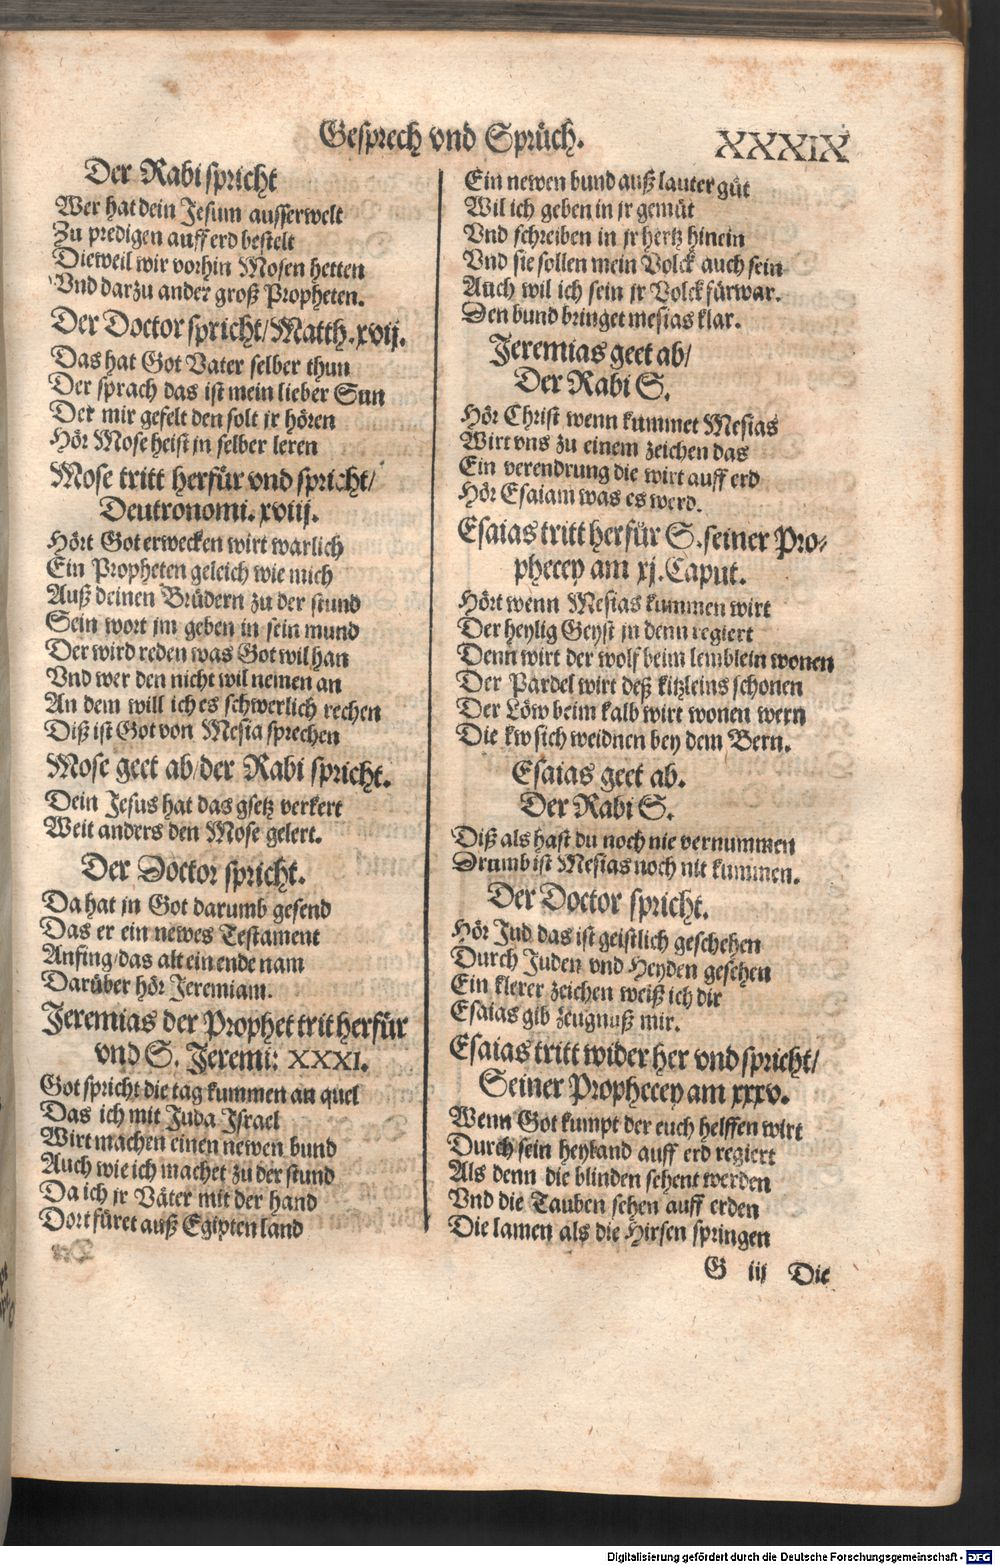 Gesprech vnd Sprüch.
XXXIX
Der Rabi spricht
Wer hat dein Jesum ausserwelt
Zu predigen auff erd bestelt
Dieweil wir vorhin Mosen hetten
Vnd darzu ander groß Propheten.
Der Doctor spricht/Matth.xvij.
Das hat Got Vater selber thun
Der sprach das ist mein lieber Sun
Der mir gefelt den solt jr hören
Hör Mose heist jn selber leren
Mose tritt herfür vnd spricht/
Deutronomi.xviij.
Hört Got erwecken wirt warlich
Ein Propheten geleich wie mich
Auß deinen Brüdern zu der stund
Sein wort jm geben in sein mund
Der wird reden was Got wil han
Vnd wer den nicht wil nemen an
An dem will ich es schwerlich rechen
Diß ist Got von Mesia sprechen
Mose geet ab/der Rabi spricht.
Dein Jesus hat das gsetz verkert
Weit anders den Mose gelert.
Der Doctor spricht.
Da hat jn Got darumb gesend
Das er ein newes Testament
Anfing/das alt ein ende nam
Darüber hör Jeremiam.
Jeremias der Prophet trit herfür
vnd S. Jeremi: XXXI.
Got spricht die tag kummen an quel
Das ich mit Juda Israel
Wirt machen einen newen bund
Auch wie ich machet zu der stund
Da ich jr Väter mit der hand
Dort füret auß Egipten land
Ein newen bund auß lauter güt
Wil ich geben in jr gemüt
Vnd schreiben in jr hertz hinein
Vnd sie sollen mein Volck auch sein
Auch wil ich sein jr Volck fürwar.
Den bund bringet mesias klar.
Jeremias geet ab/
Der Rabi S.
Hör Christ wenn kummet Mesias
Wirt vns zu einem zeichen das
Ein verendrung die wirt auff erd
Hör Esaiam was es werd.
Esaias tritt herfür S. seiner Pro-
phecey am xj. Caput.
Hört wenn Mesias kummen wirt
Der heylig Geyst jn denn regiert
Denn wirt der wolf beim lemblein wonen
Der Pardel wirt deß kitzleins schonen
Der Löw beim kalb wirt wonen wern
Die kw sich weidnen bey dem Bern.
Esaias geet ab.
Der Rabi S.
Diß als hast du noch nie vernummen
Drumb ist Mesias noch nit kummen.
Der Doctor spricht.
Hör Jud das ist geistlich geschehen
Durch Juden vnd Heyden gesehen
Ein klerer zeichen weiß ich dir
Esaias gib zeugnuß mir.
Esaias tritt wider her vnd spricht/
Seiner Prophecey am xxxv.
Wenn Got kumpt der euch helffen wirt
Durch sein heyland auff erd regiert
Als denn die blinden sehent werden
Vnd die Tauben sehen auff erden
Die lamen als die Hirsen springen
G iij Die
Digitalisierung gefördert durch die Deutsche Forschungsgemeinschaft - DFG